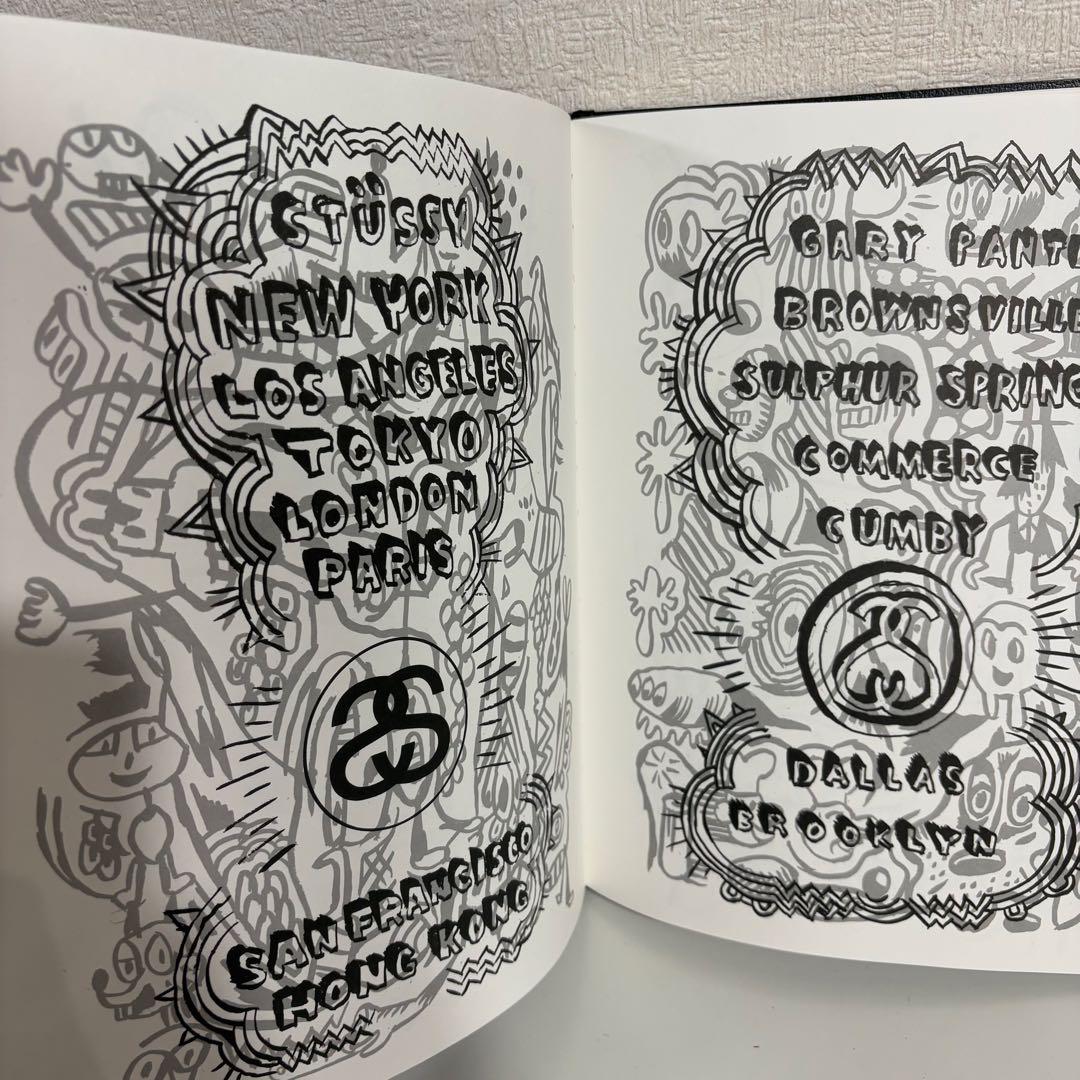 STÜSSY
NEW YORK
LOS ANGELES
TOKYO
LONDON
PARIS
SAN FRANCISCO
HONG KONG
GARY PANT
BROWNSVILLE
SULPHUR SPRING
COMMERCE
CUMBY
DALLAS
BROOKLYN